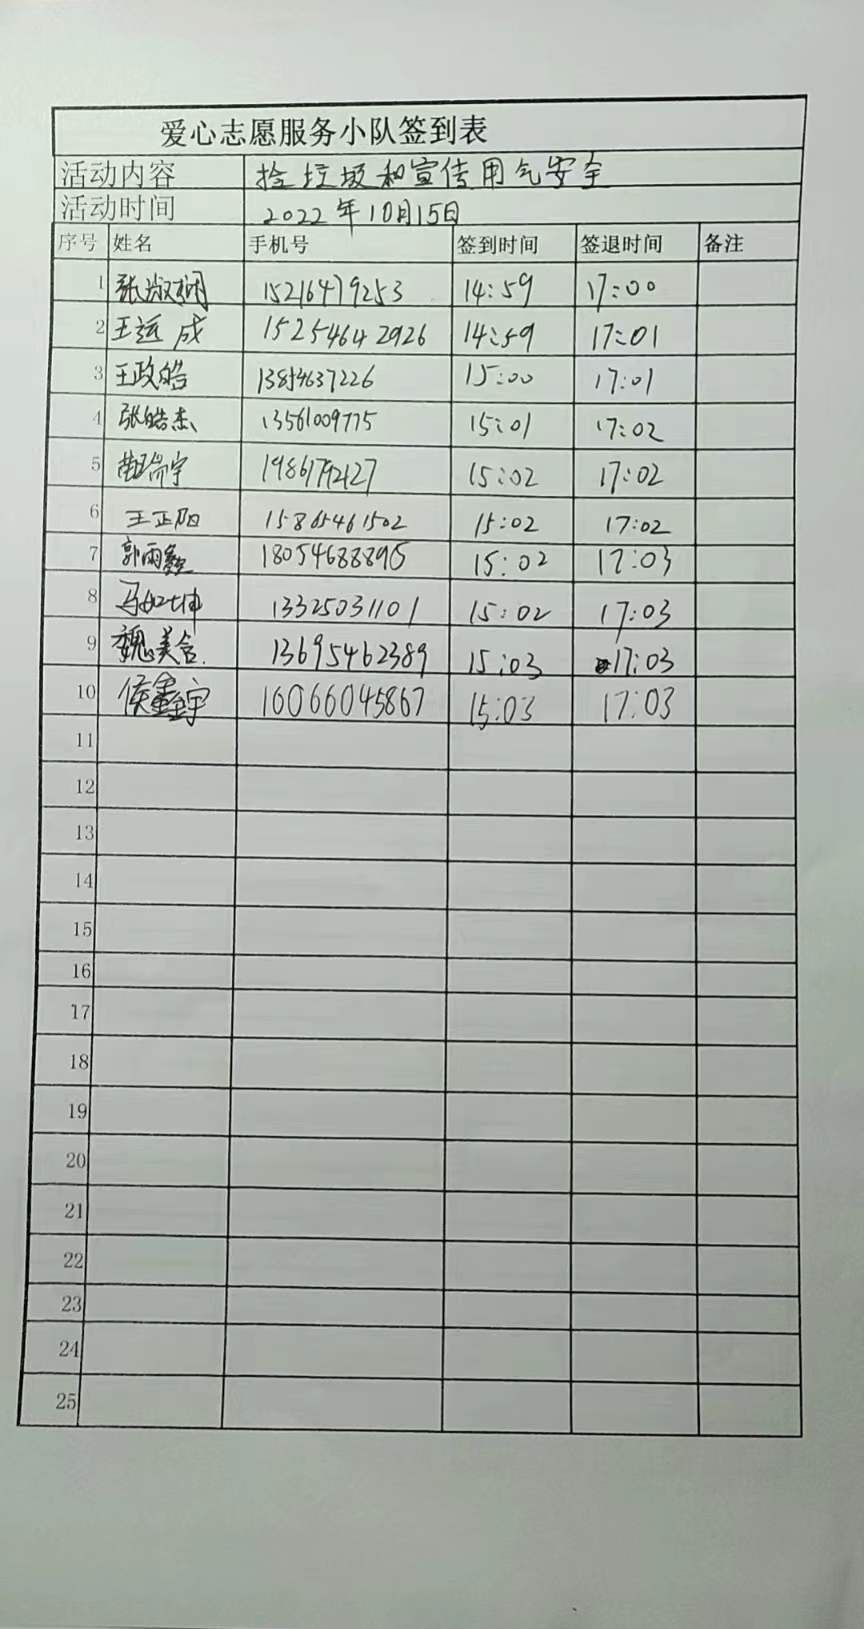 爱心志愿服务小队签到表
活动内容 捡垃圾和宣传用气安全
活动时间 2022年10月15日
序号 姓名 手机号 签到时间 签退时间 备注
1 张淑娴 15216479253 14:59 17:00
2 王运成 15254642926 14:59 17:01
3 王政皓 13854637226 15:00 17:01
4 张皓杰 13561009775 15:01 17:02
5 瑞宇 15:02 17:02
6 王正阳 15865461502 15:02 17:02
7 郭雨鑫 18054688895 15:02 17:03
8 马如坤 13325031101 15:02 17:03
9 魏美含 13695462389 15:03 17:03
10 侯鑫宇 16066045867 15:03 17:03
11
12
13
14
15
16
17
18
19
20
21
22
23
24
25